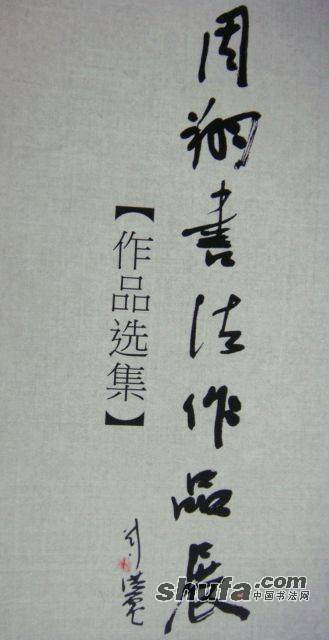 周翔书法作品展
【作品选集】
shufa.com
中国书法网